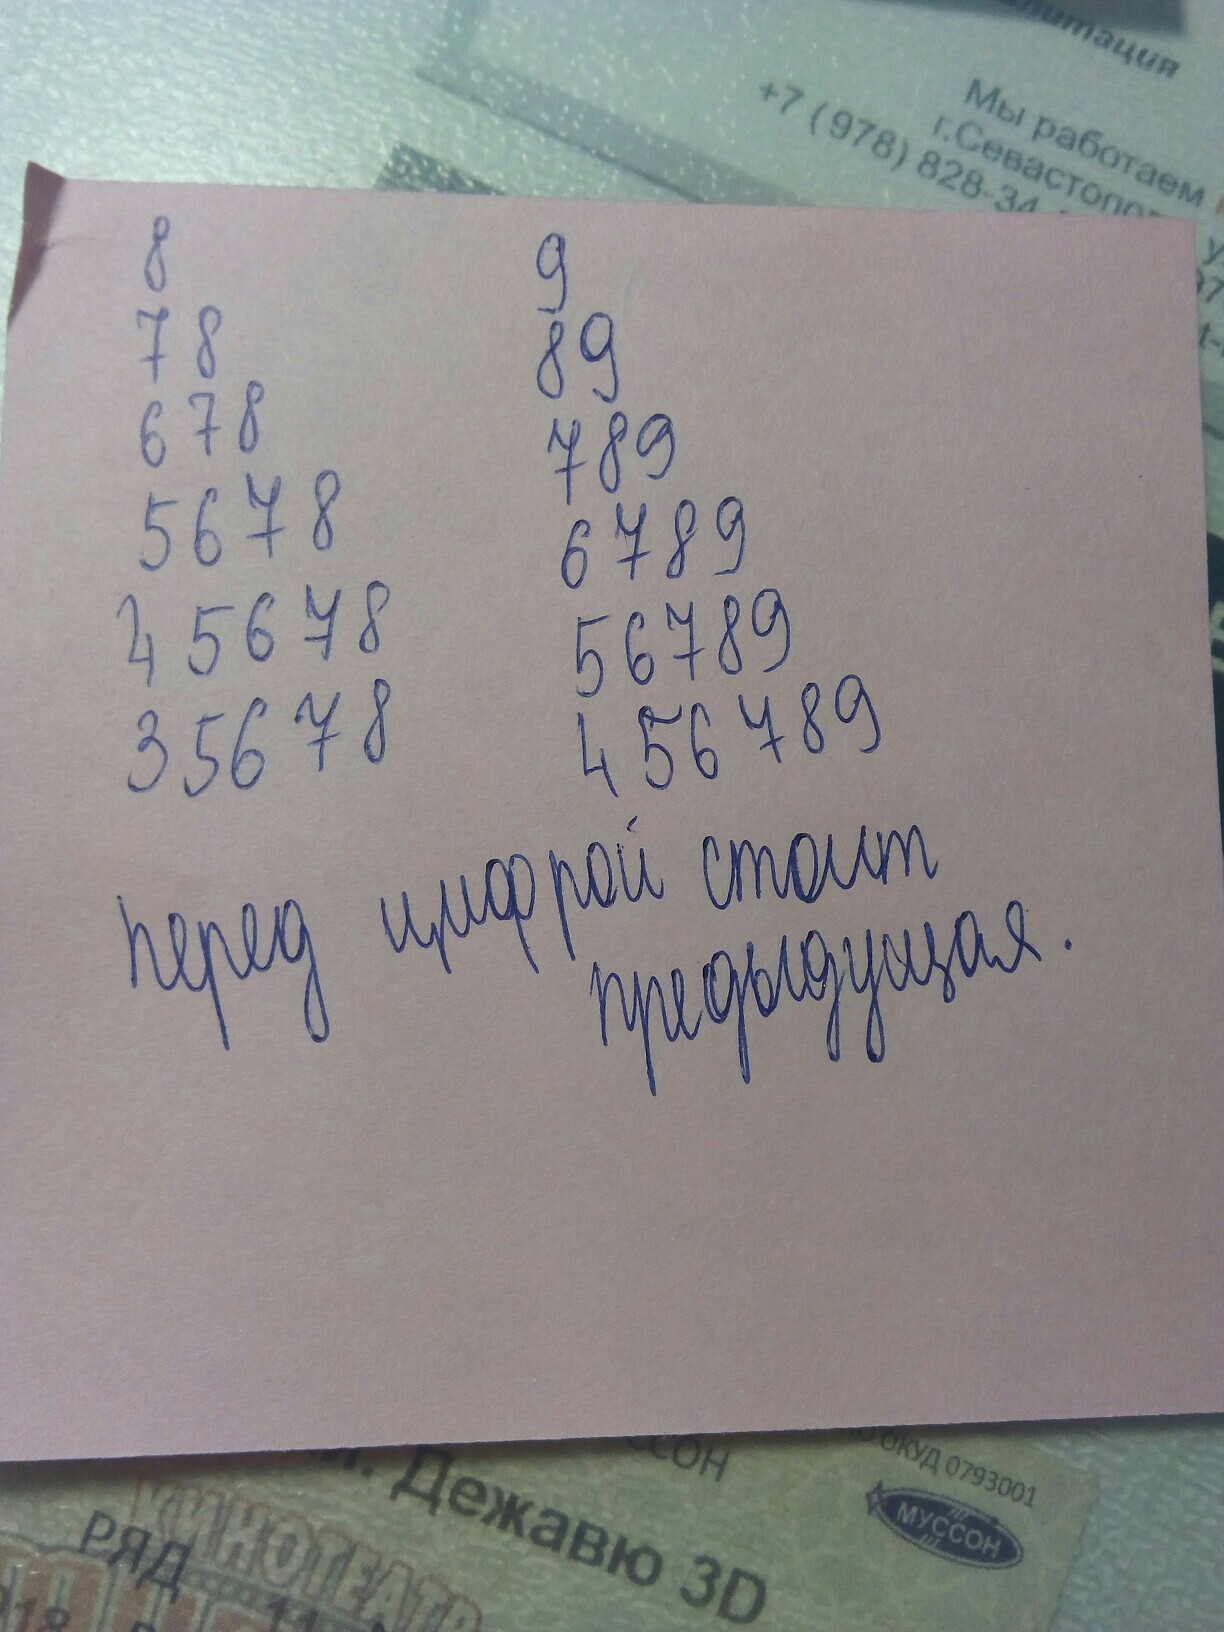 Мы работаем
г.Севастопо
+7 (978) 828-34
8
78
678
5678
45678
35678
9
89
789
6789
56789
456789
перед цифрой стоит
предыдущая.
ССОН
ОКУД 0793001
Дежавю 3D
МУССОН
КИНОТЕАТР
РЯД